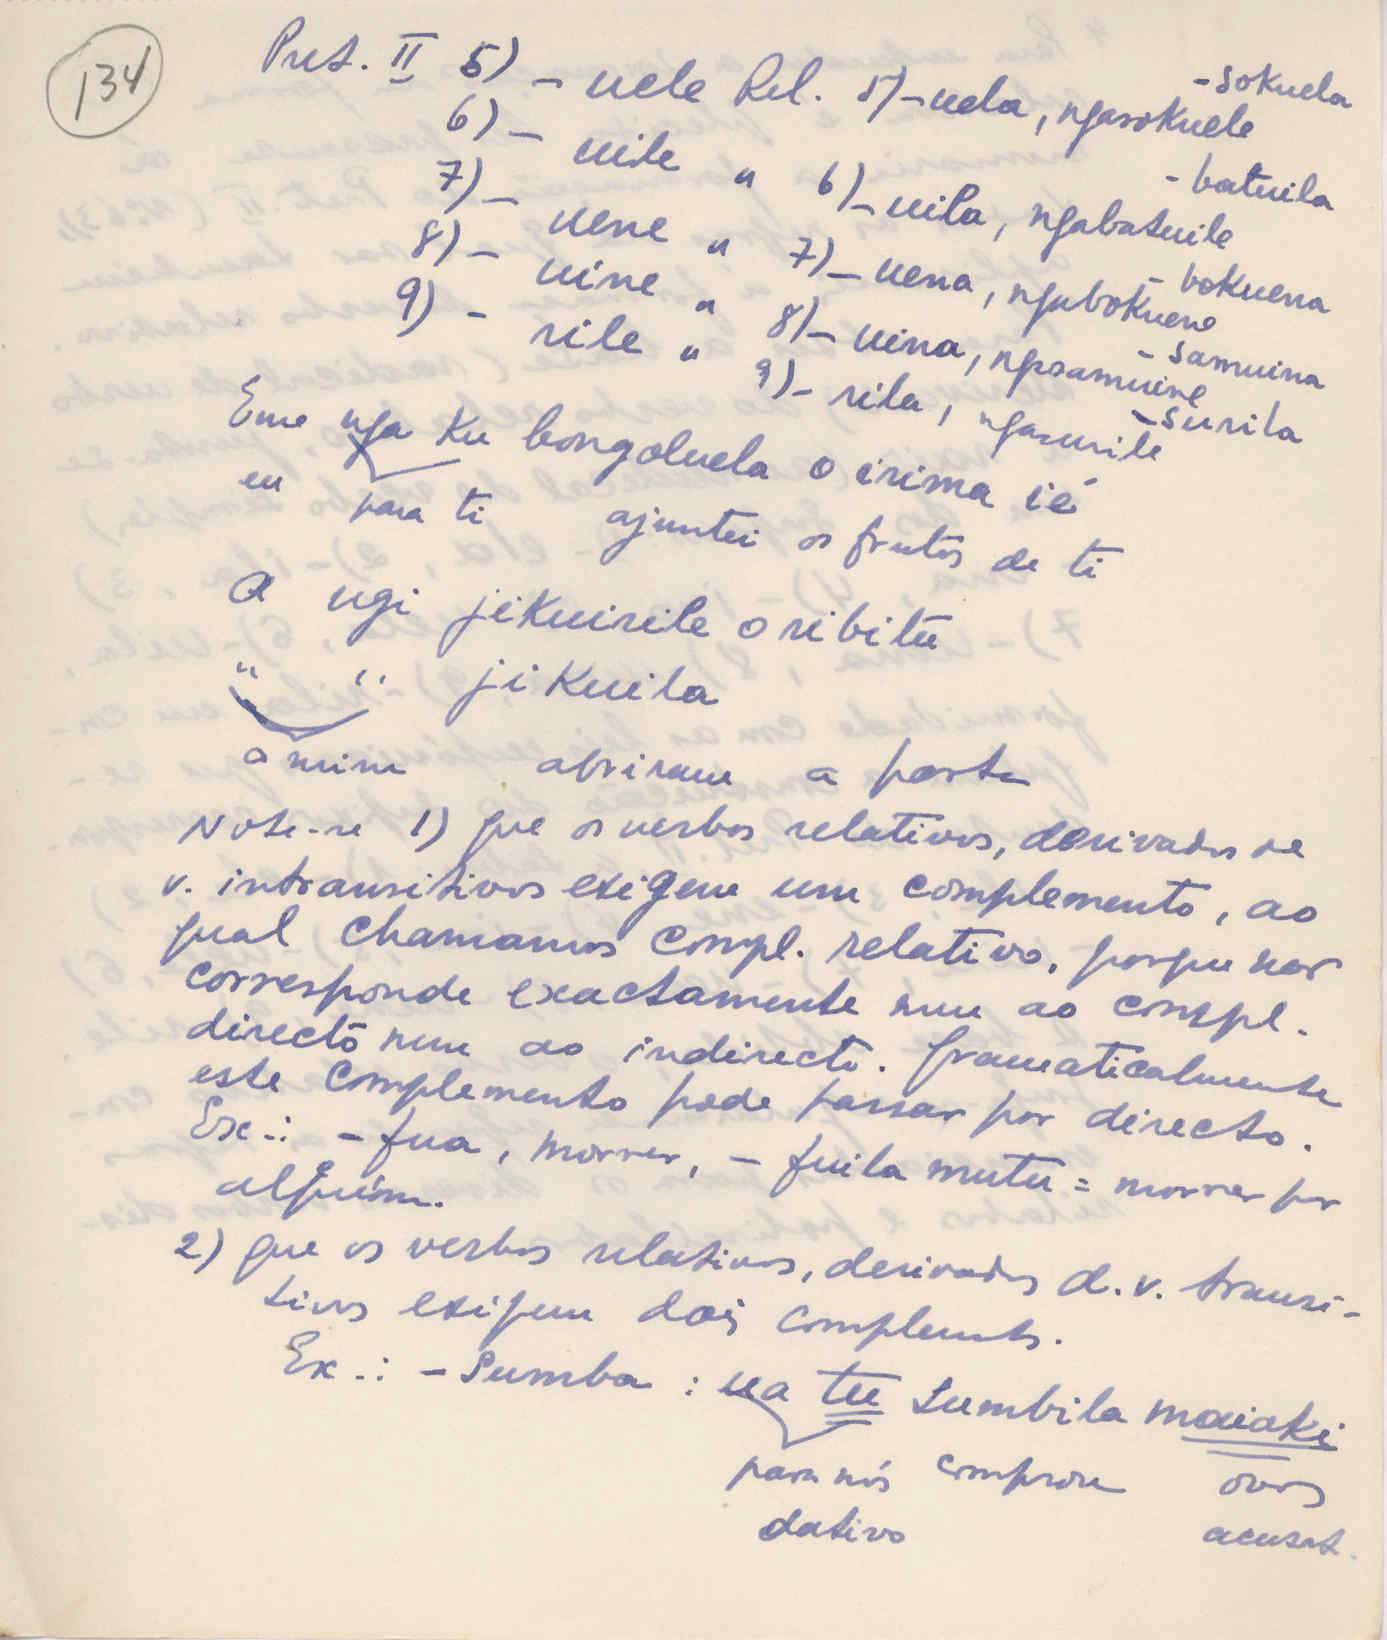 134
Pret. II 5) - uele Rel. 5) - uela, ngasokuele - sokuela
6) - uile " 6) - uila, ngabatuile - batuila
7) - uene " 7) - uena, ngabokuene - bokuena
8) - uine " 8) - uina, ngasamuine - samuina
9) - rile " 9) - rila, ngasurile - surila
Eme nga ku bongoluela o irima ié
eu para ti ajuntei os frutos de ti
A ngi jikuirile o ribitu
" " jikuila
a mim abriram a porta
Note-se 1) que os verbos relativos, derivados de
v. intransitivos exigem um complemento, ao
qual chamamos compl. relativo, porque não
corresponde exactamente nem ao compl.
directo nem ao indirecto. Gramaticalmente
este complemento pode passar por directo.
Ex.: - fua, morrer, - fuila mutu = morrer por
alguém.
2) que os verbos relativos, derivados d. v. transi-
tivos exigem dois complements.
Ex.: - Sumba : ua tu sumbila maiaki
para nós comprou ovos
dativo acusat.